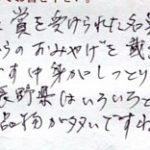 賞を受けられた名
らのおみやげを戴き
す中身がしっとり
長野県はいろいろと
品物が多いですね